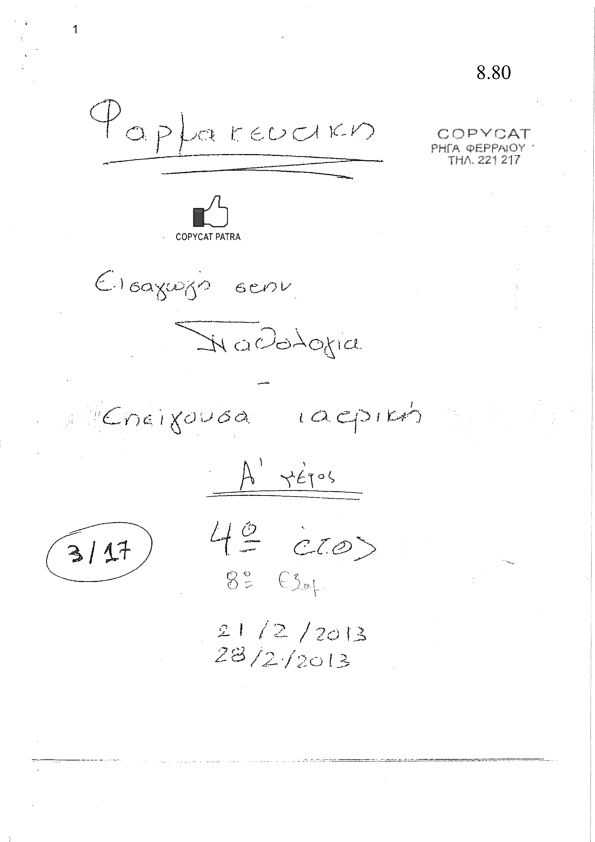 1
8.80
Φαρμακευτική
COPYCAT
ΡΗΓΑ ΦΕΡΡΑΙΟΥ
ΤΗΛ. 221 217
COPYCAT PATRA
Εισαγωγή στην
Παθολογία
–
Επείγουσα ιατρική
Α' μέρος
4º έτος
3/17
8º Εξαμ
21/2/2013
28/2/2013